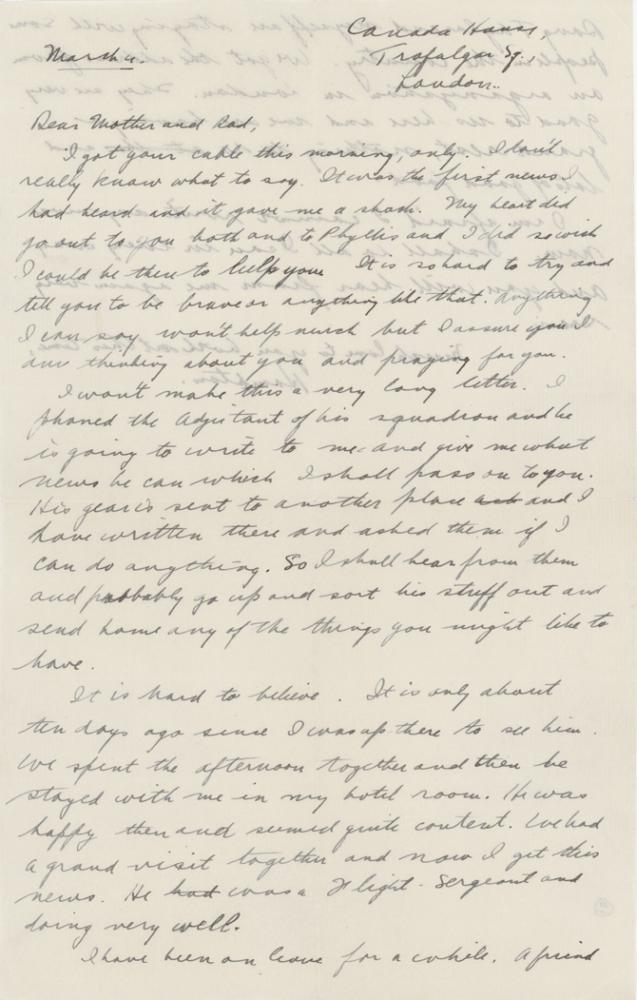 Canada House,
Trafalgar Sq.,
London.
March 4.
Dear Mother and Dad,
I got your cable this morning, only. I don't
really know what to say. It was the first news I
had heard and it gave me a shock. My heart did
go out to you both and to Phyllis and I did so wish
I could be there to help you. It is so hard to try and
tell you to be brave or anything like that. Anything
I can say won't help much but I assure you I
am thinking about you and praying for you.
I won't make this a very long letter. I
phoned the Adjutant of his squadron and he
is going to write to me and give me what
news he can which I shall pass on to you.
His gear is sent to another place and I
have written there and asked them if I
can do anything. So I shall hear from them
and probbably go up and sort his stuff out and
send home any of the things you might like to
have.
It is hard to believe. It is only about
ten days ago since I was up there to see him.
We spent the afternoon together and then he
stayed with me in my hotel room. He was
happy then and seemed quite content. We had
a grand visit together and now I get this
news. He had was a Flight-Sergeant and
doing very well.
I have been on leave for a while. A friend